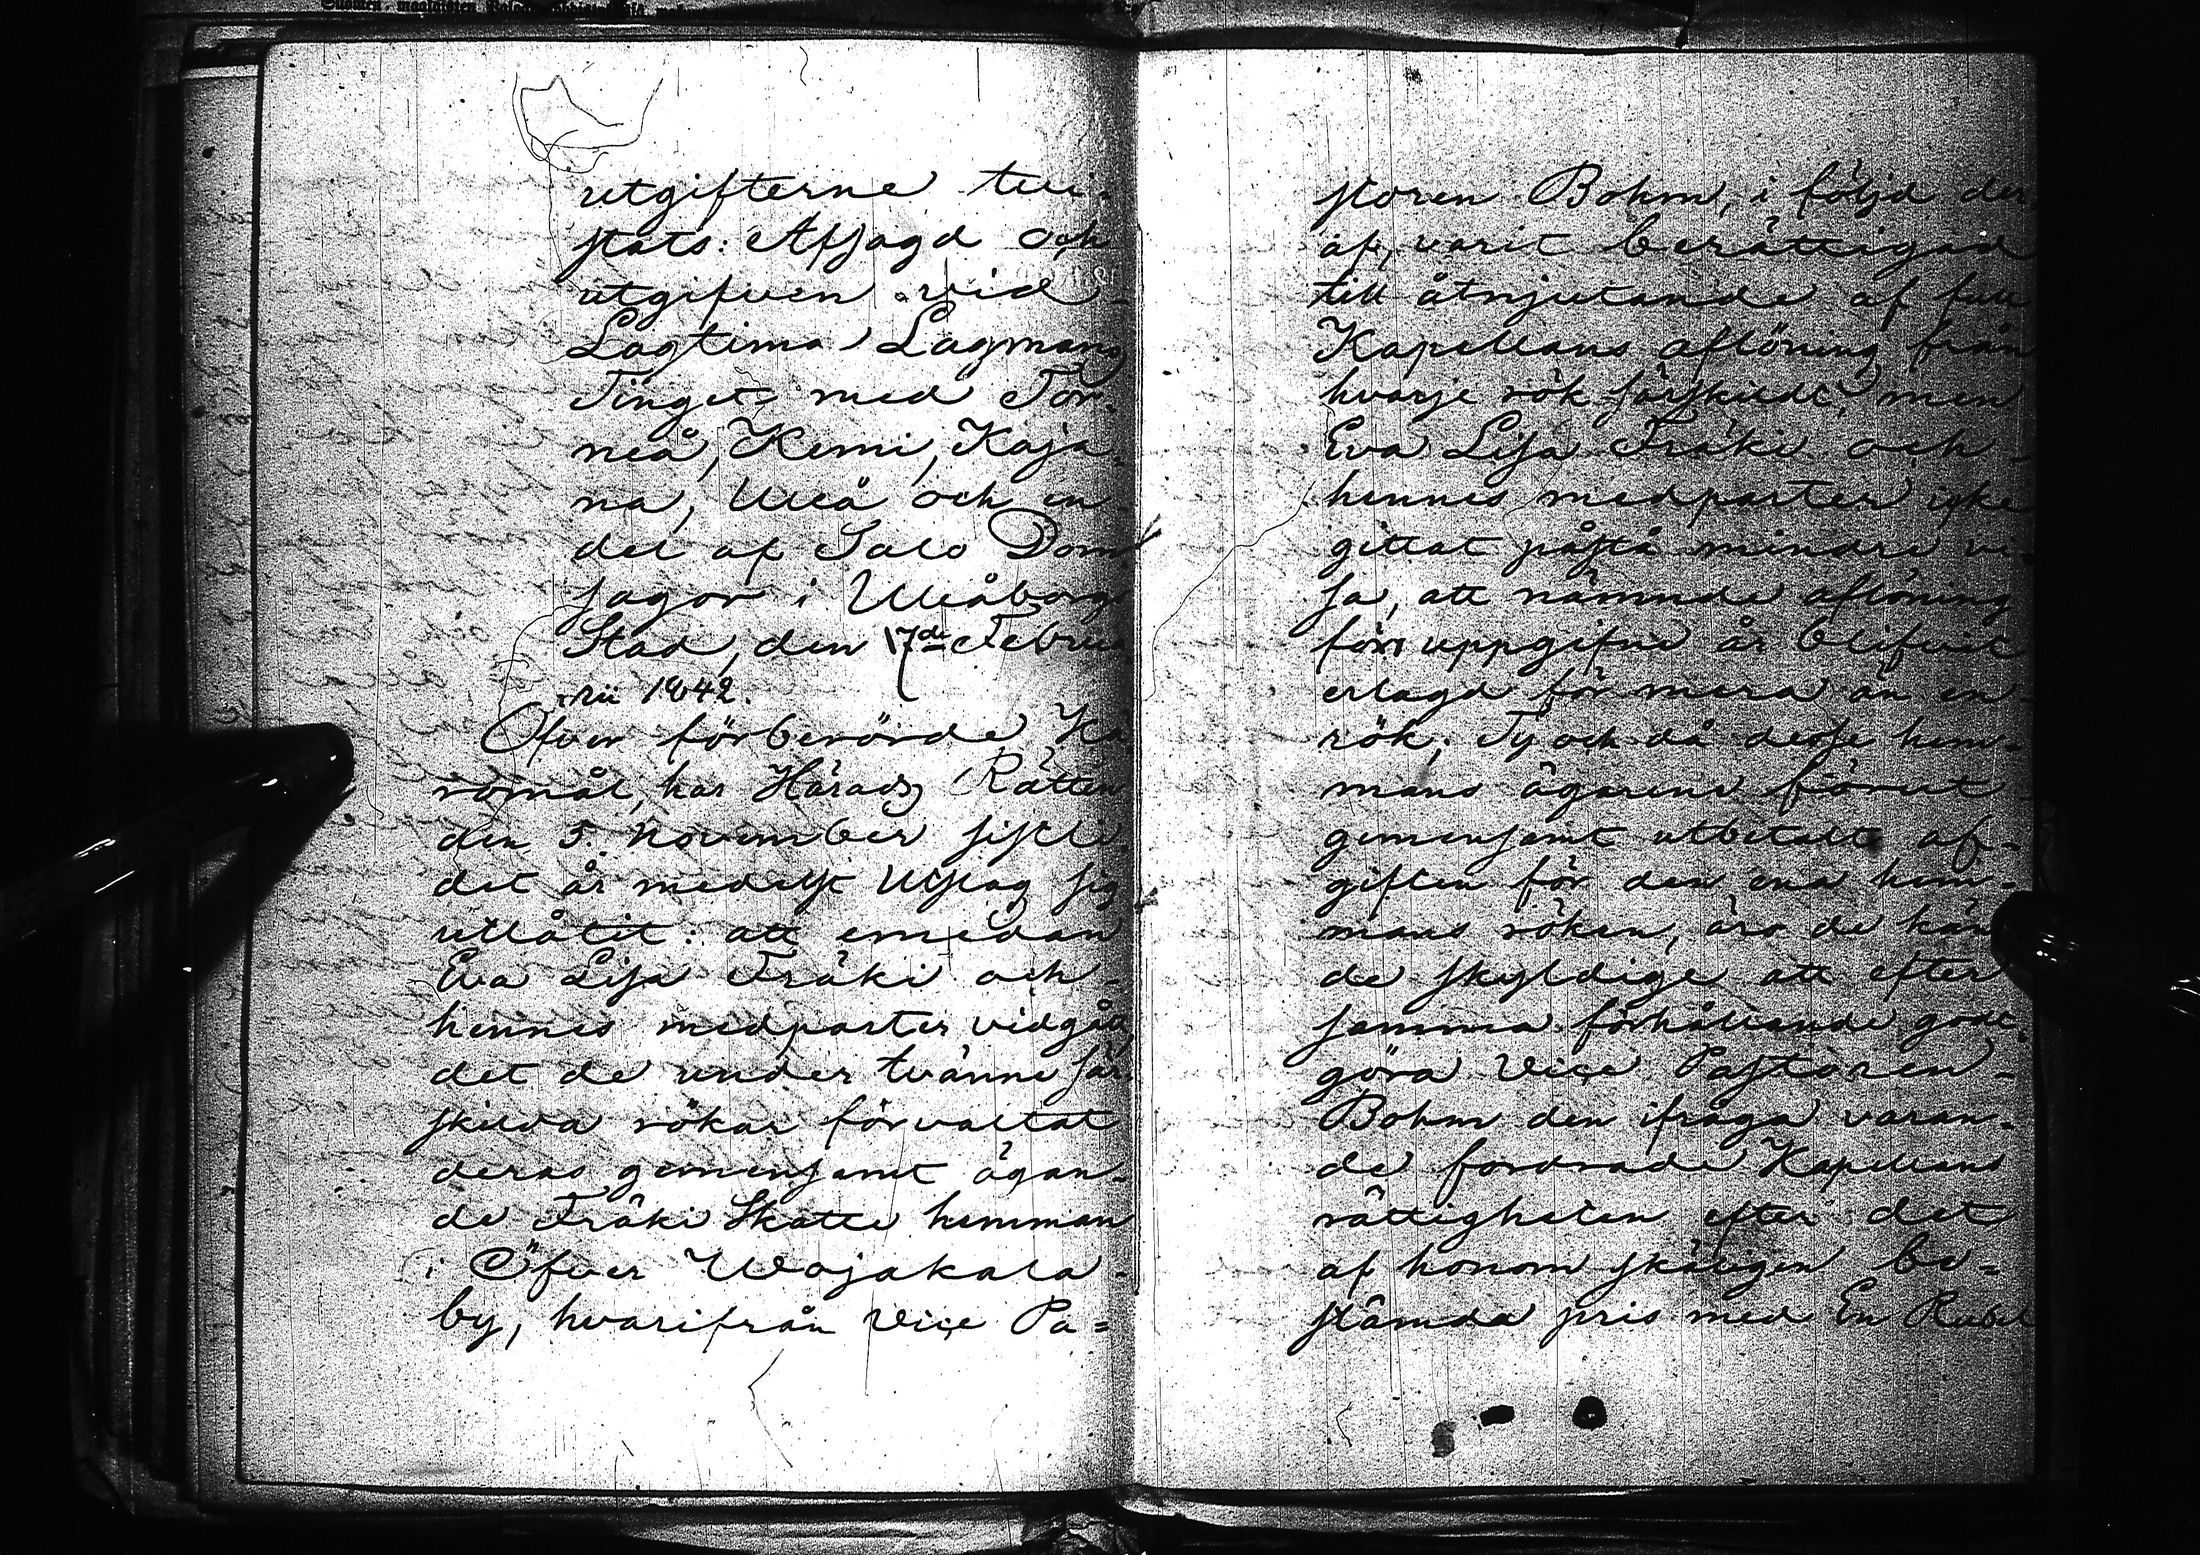 utgifterne tvi-
stats: Afsagd och
utgifven vid
Lagtima Lagmans
Tinget med Tor-
neå, Kemi, Kaja-
na, Uleå och en
del af Salo Dom
sagor i Uleåborgs
Stad, den 17de Febru
arii 1842.
Öfver förberörde Kä
romål, har Härads Rätten
den 5. November sistli
det år medelst Utslag sig
utlåtit: att emedan
Eva Lisa Träki och
hennes medparter vidgått
det de under tvänne sär-
skilda rökar förvaltat
deras gemensamt ägan-
de Träki Skatte hemman
i Öfver Wojakala
by, hvarifrån Vice Pa=
storen Bohm, i följd der
af, varit berättigad
till åtnjutande af full
Kapellans aflöning från
hvarje rök särskildt, men
Eva Lisa Träki och
hennes medparter icke
gittat påstå mindre vi-
sa, att nämnde aflöning
för uppgifne år blifvit
erlagd för mera än en
rök; Ty och då desse hem-
mans ägarene förut
gemensamt utbetalt af-
giften för den ena hem-
mans röken, äro de kän
de skyldige att efter
samma förhållande godt-
göra Vice Pastoren
Bohm den ifråga varan-
de fordrade Kapellans
rättigheten efter det
af honom skäligen be=
stämda pris med En Rubel